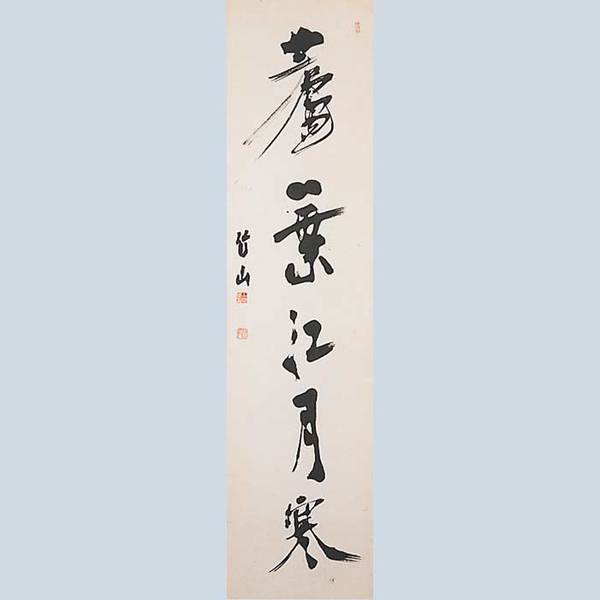 蘆葉江月寒
竹山